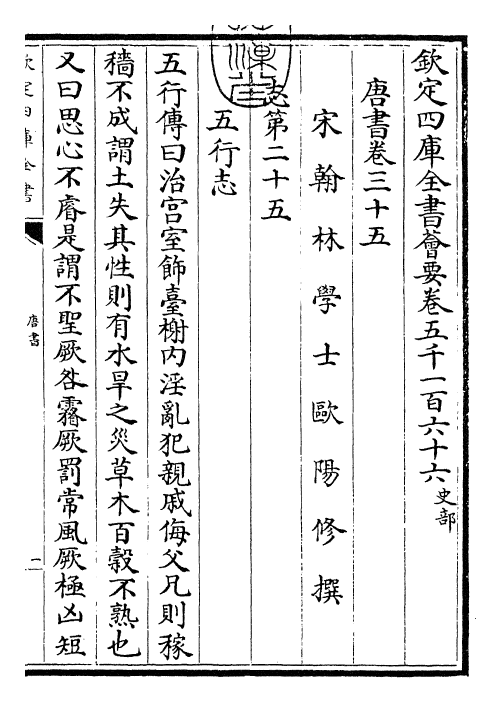 欽定四庫全書薈要卷五千一百六十六史部
唐書卷三十五
宋翰林學士歐陽修撰
志第二十五
五行志
五行傳曰治宫室飾臺榭内淫亂犯親戚侮父兄則稼
穡不成謂土失其性則有水旱之災草木百穀不熟也
又曰思心不睿是謂不聖厥咎霿厥罰常風厥極凶短
欽定四庫全書
唐書